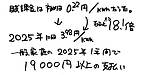 賦課金は初回 0.22円/kWhだった。
2025年は 3.98円/kWh なんと18.1倍
一般家庭の2025年1年間で
19000円以上の支払い